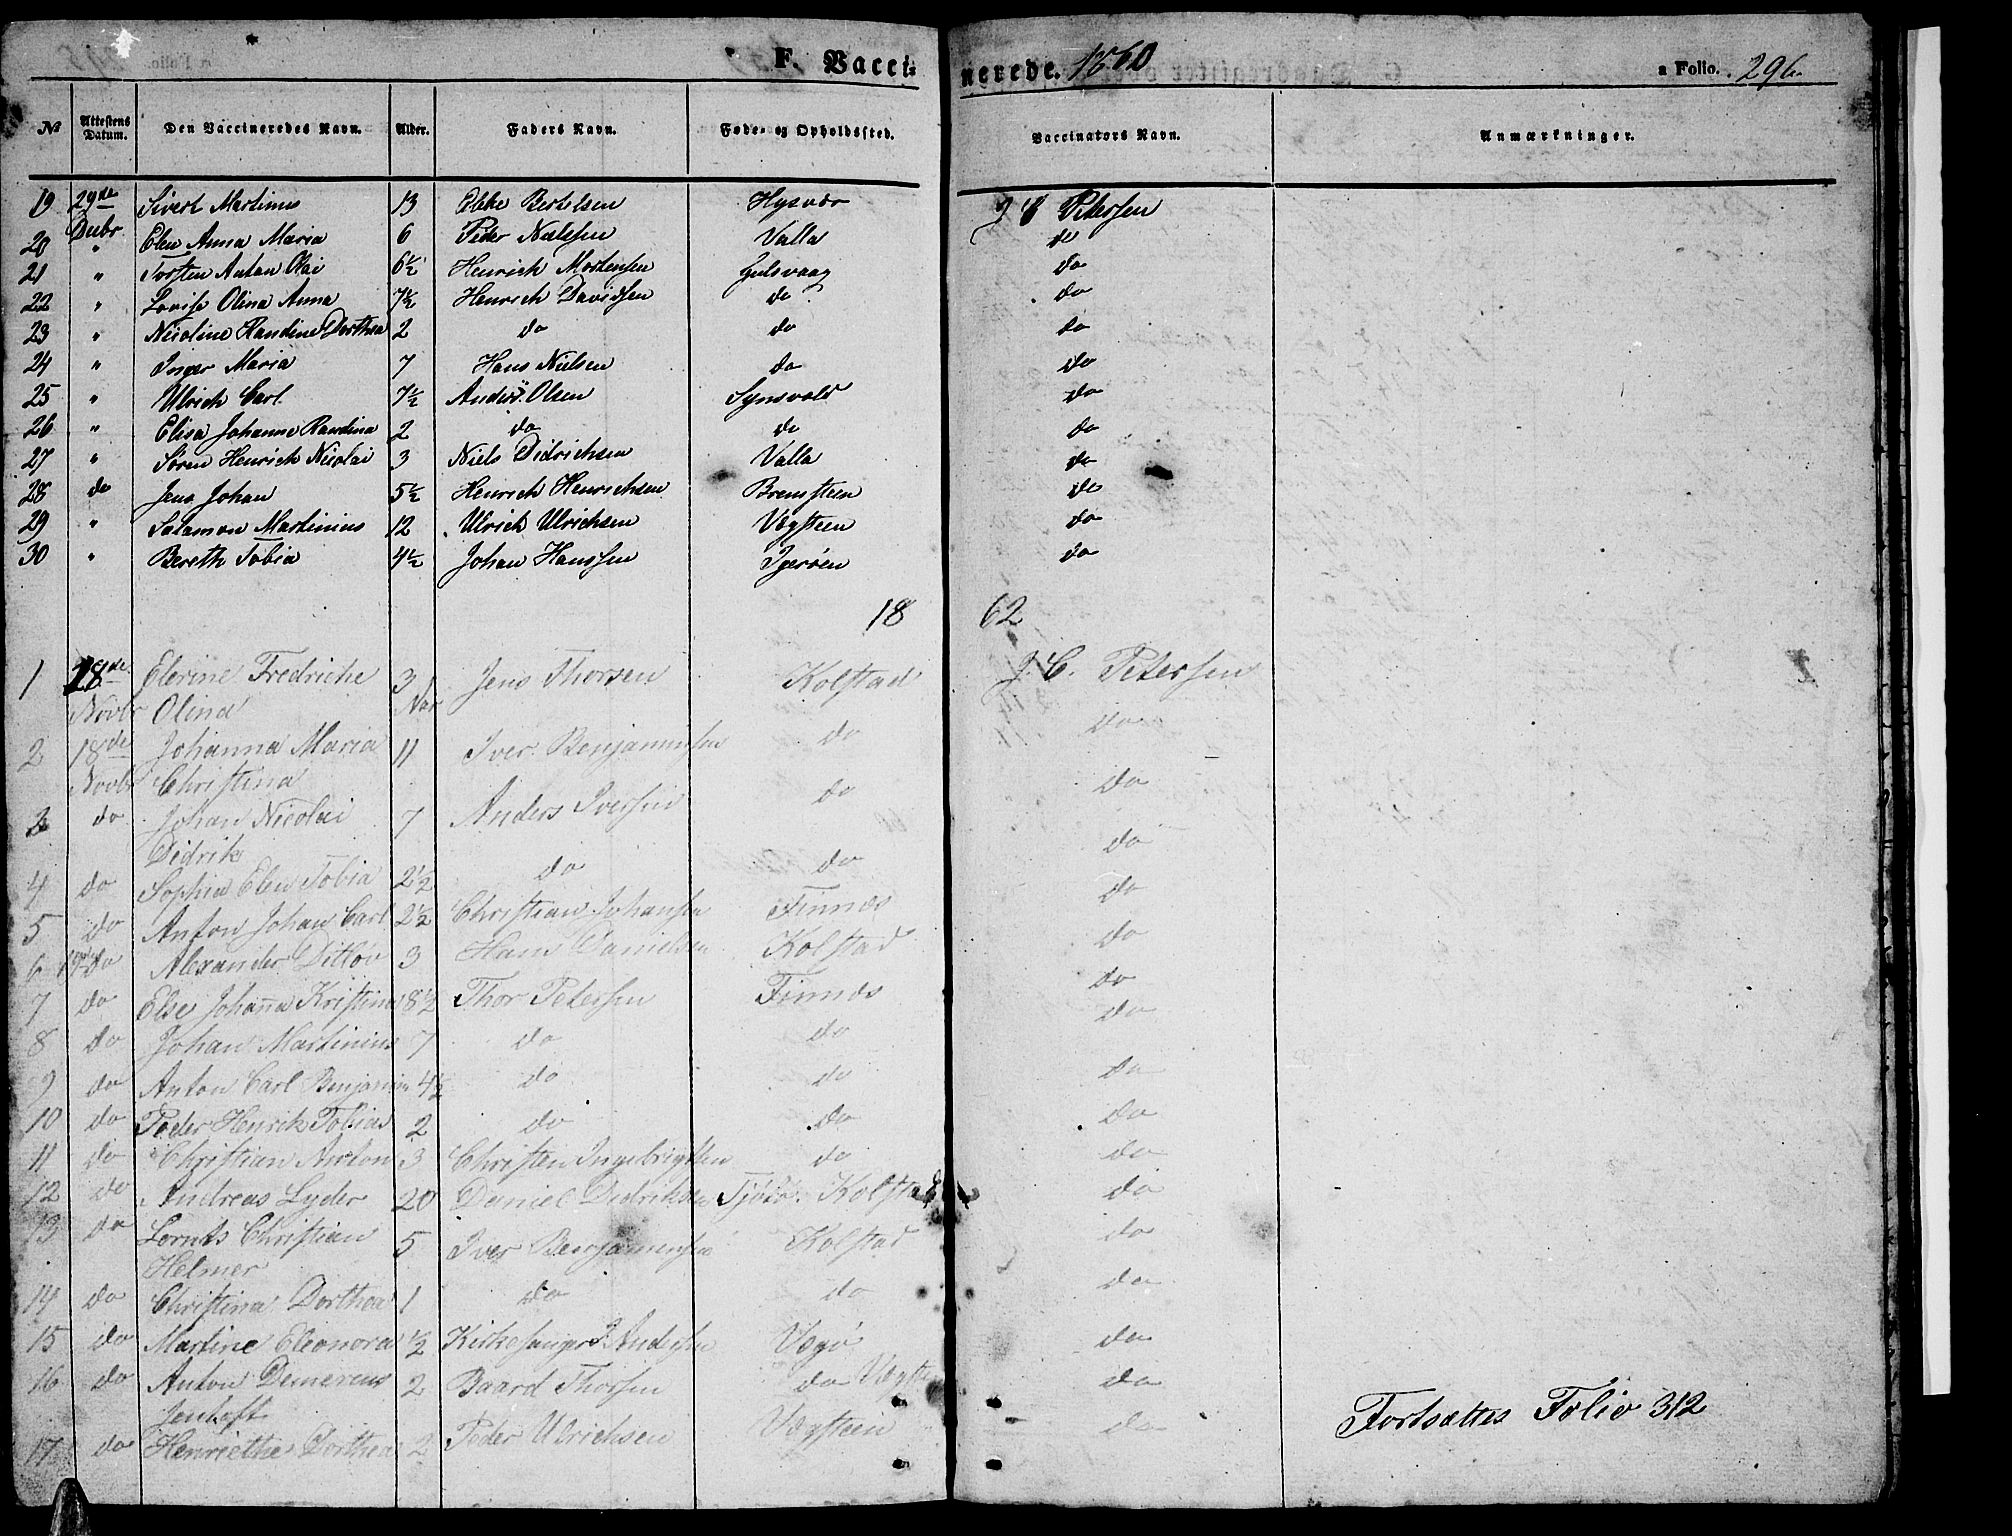 F. Vaccinerede. 1860 a Folio. 296.
№ Attestens Datum. Den Vaccineredes Navn. Alder. Faders Navn. Føde- og Opholdssted. Vaccinators Navn. Anmærkninger.
19 29de Decbr Sivert Martinus 13 Ebbe Bertelsen Hysvær J C Petersen
20 " Elen Anna Maria 6 Peder Nielssen Valla do
21 " Torsten Anton Olai 6½ Henrich Mortensen Gulsvaag do
22 " Lovise Olina Anna 7½ Henrich Davidsen do do
23 " Nicoline Randine Dorthea 2 do do do
24 " Inger Maria 7 Hans Nielsen do do
25 " Ulrich Carl 7½ Anders Olsen do
26 " Elisa Johanne Randina 2 do do do
27 " Søren Henrich Nicolai 3 Niels Didrichsen Valla do
28 do Jens Johan 5½ Henrich Henrichsen Bremsteen do
29 " Salamon Martinius 12 Ulrich Ulrichsen Vegsteen do
30 " Bereth Tobia 4½ Johan Hanssen Igerøen do
1862
1 18de Novbr Elerine Fredriche 3 Aar Jens Thorsen Kolstad J. C. Petersen
Olina
2 18de Novbr Johanna Maria 11 Iver Benjaminsen do do
Christina
3 do Johan Nicolai 7 Anders Iversen do do
Didrik
4 do Sophia Elen Tobia 2½ do do do
5 do Anton Johan Carl 2½ Christian Johansen Finnæs do
6 19de do Alexander Ditlov 3 Hans Danielsen Kolstad do
7 do Else Johanna Kristina 8½ Thor Petersen Finnæs do
8 do Johan Martinius 7 do do do
9 do Anton Carl Benjamin 4½ do do do
10 do Peder Henrik Tobias 2 do do do
11 do Christian Anton 3 Christen Ingebrigtsen do do
12 do Andreas Lyder 20 Daniel Didriksen Kolstad do
13 do Lornts Christian 5 Iver Benjaminsen Kolstad do
Helmer
14 do Christina Dorthea 1 do do do
15 do Martine Eleonora ½ Kirkesanger J. Andersen Vegø do
16 do Anton 2 Baard Thorsen do do
Jentoft
17 do Henriethe Dorthea 2 Peder Ulrichsen Vegsteen do
Fortsættes Folio 312